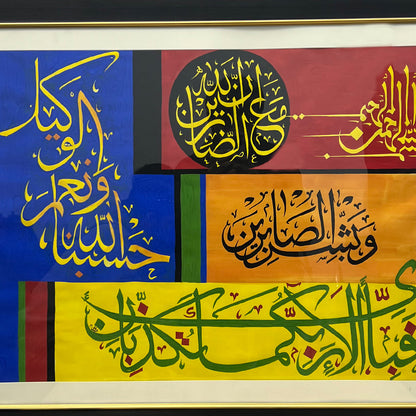 بسم الله الرحمن الرحيم
إن الله مع الصابرين
حسبنا الله ونعم الوكيل
وبشر الصابرين
فبأي آلاء ربكما تكذبان